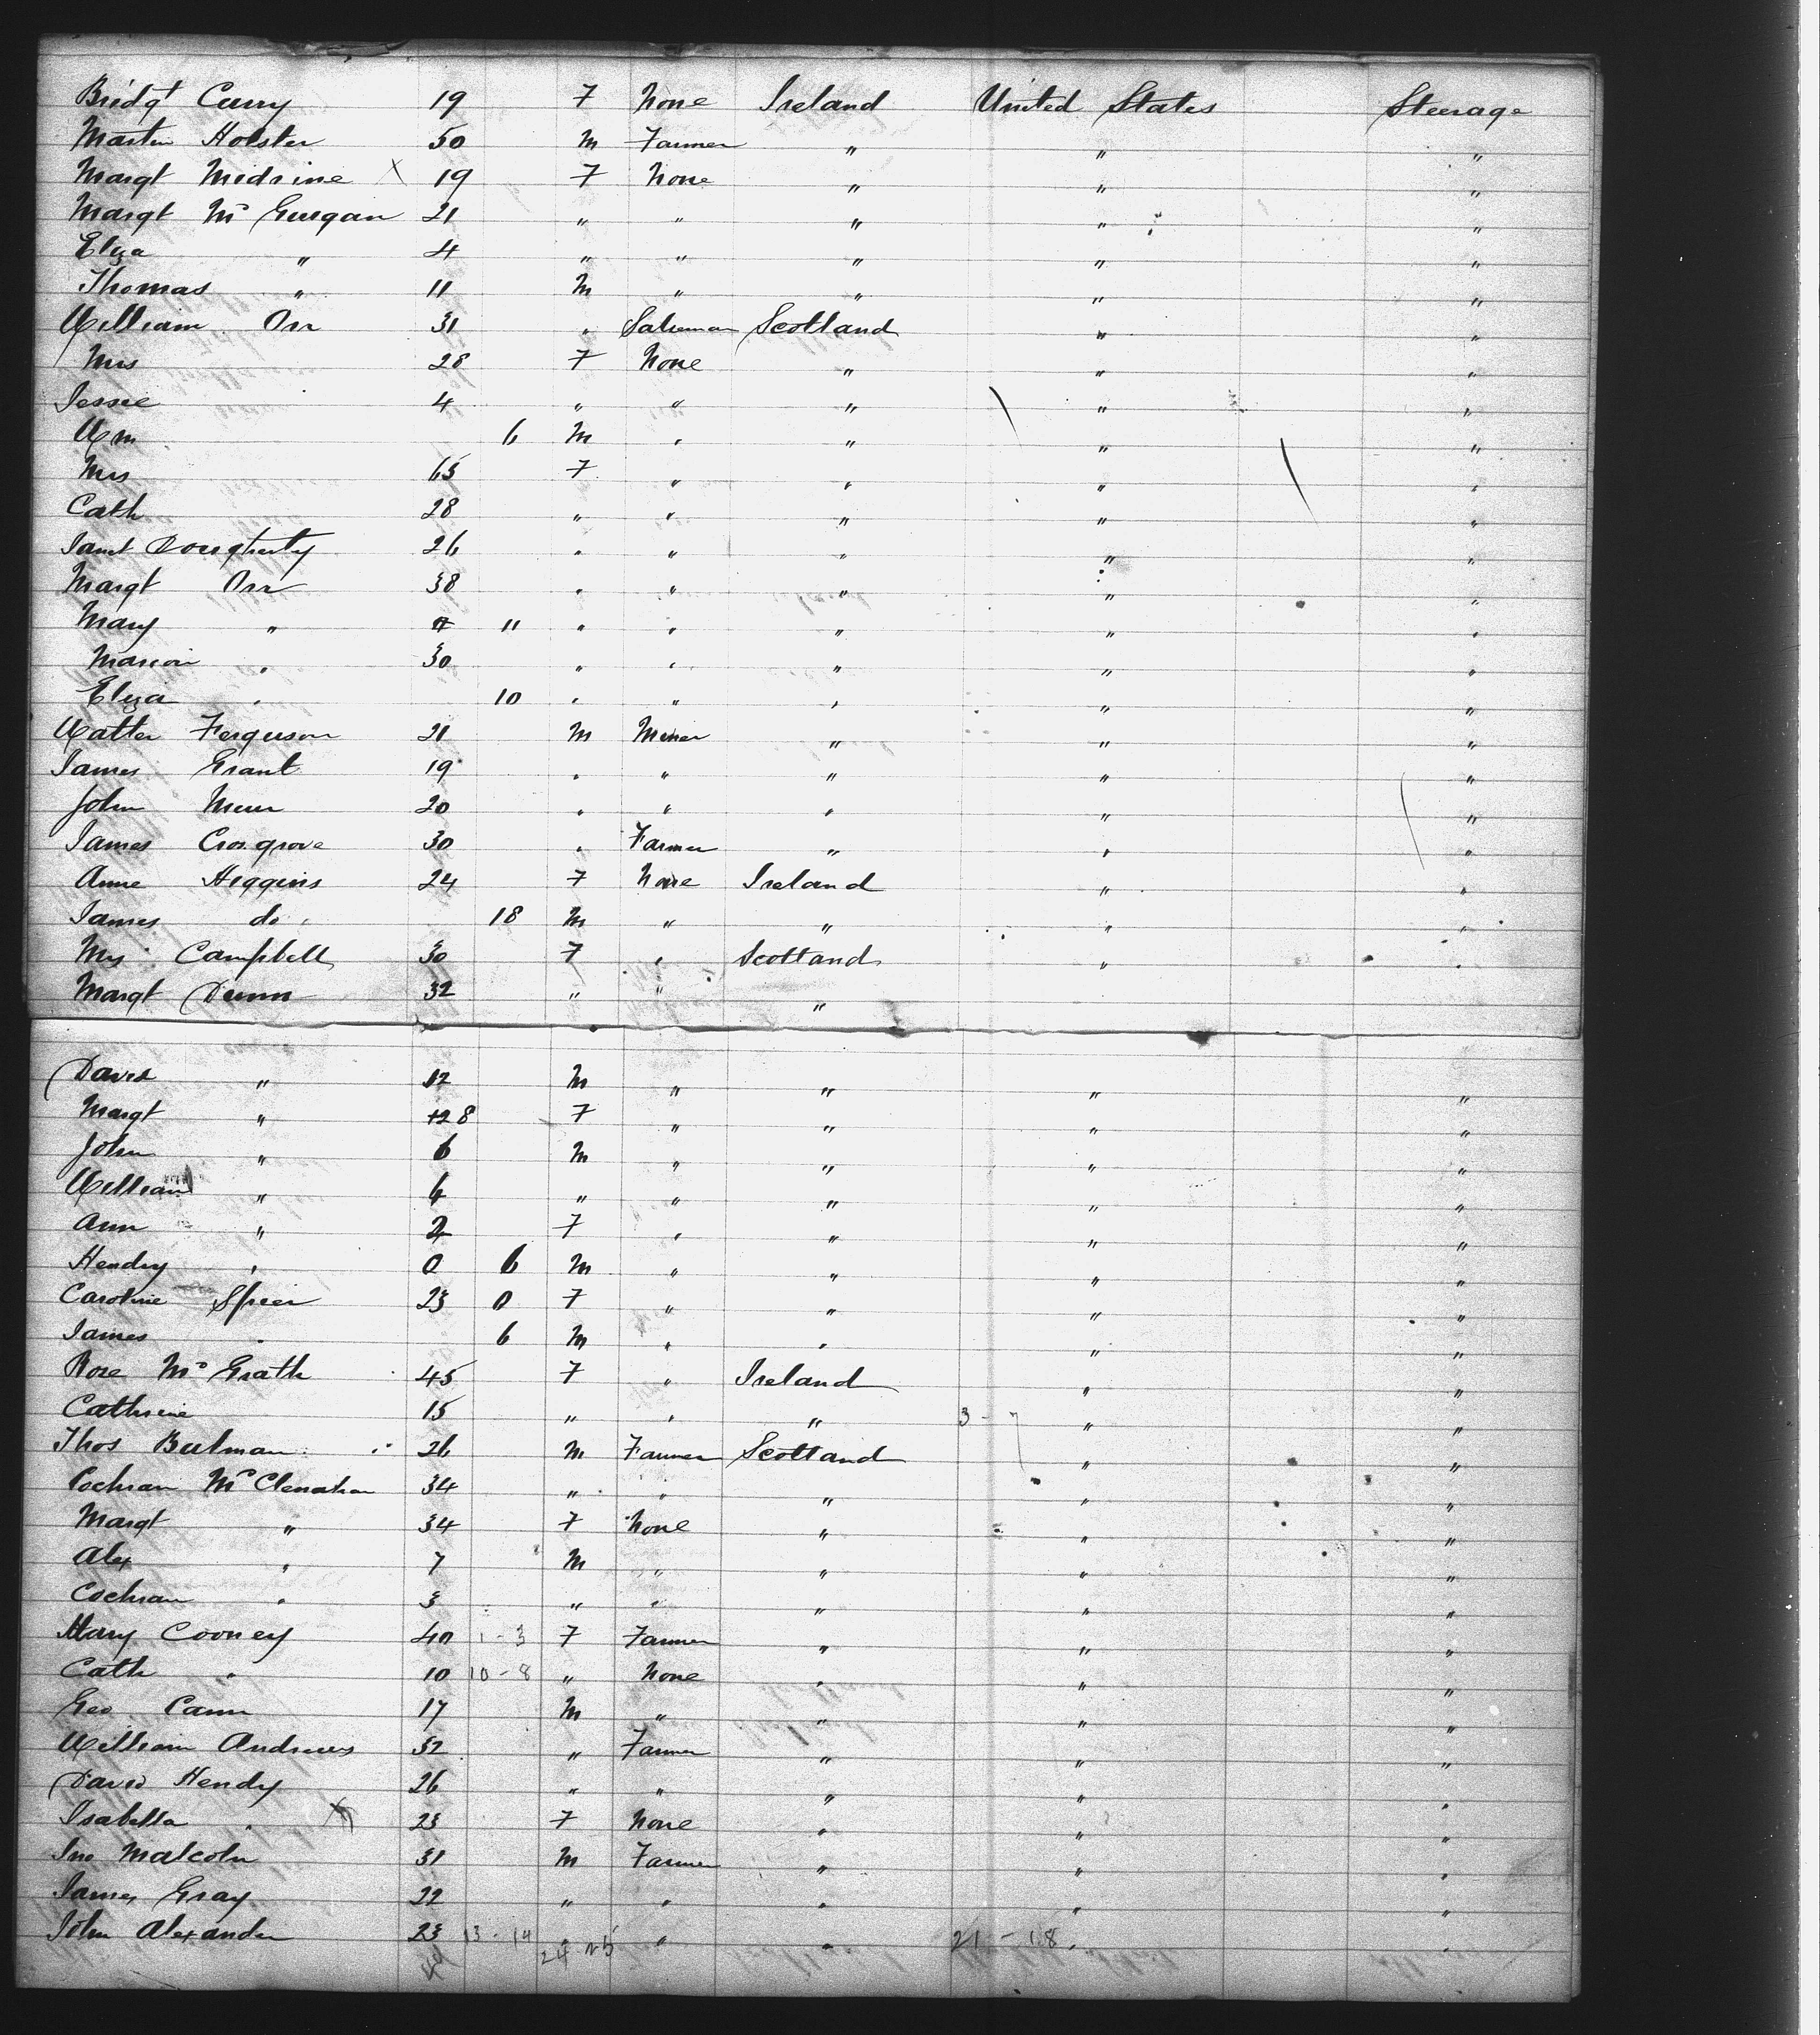 Bridgt Curry 19 F None Ireland United States Steerage
Martin Holster 50 M Farmer " " "
Margt X 19 F None " " "
Margt Mc Gurgan 21 " " " " "
Eliza " 4 " " " " "
Thomas " 11 M " " " "
William Orr 31 " Salesman Scotland " "
Mrs 28 F None " " "
Jessie 4 " " " " "
Wm 6 M " " " "
Mrs 65 F " " " "
Cath 28 " " " " "
Janet Dougherty 26 " " " " "
Margt Orr 38 " " " " "
Mary " 11 " " " " "
Marion " 30 " " " " "
Eliza " 10 " " " " "
Walter Ferguson 21 M Miner " " "
James Grant 19 " " " " "
John Muir 20 " " " " "
James Cosgrove 30 " Farmer " " "
Anne Higgins 24 F None Ireland " "
James do 18 M " " " "
Mrs Campbell 30 F " Scotland " "
Margt Dunn 32 " " "
David " 12 M " " " "
Margt " 8 F " " " "
John " 6 M " " " "
William " 4 " " " " "
Ann " 2 F " " " "
Hendry " 0 6 M " " " "
Caroline Speir 23 0 F " " " "
James " 6 M " " " "
Rose Mc Grath 45 F " Ireland " "
Cathrine 15 " " " 3 - 7 " "
Thos Bulman 26 M Farmer Scotland " "
Cochran Mc Clenahan 34 " " " " "
Margt " 34 F None " " "
Alex " 7 M " " " "
Cochran " 3 " " " " "
Mary Cooney 40 1 - 3 F Farmer " " "
Cath " 10 10 - 8 " None " " "
Geo Cann 17 M " " " "
William Andrews 32 " Farmer " " "
David Hendy 26 " " " " "
Isabella " X 23 F None " " "
Jno Malcolm 31 M Farmer " " "
James Gray 22 " " " " "
John Alexander 23 13 - 14 " " " 21 - 18 " "
24 25
49